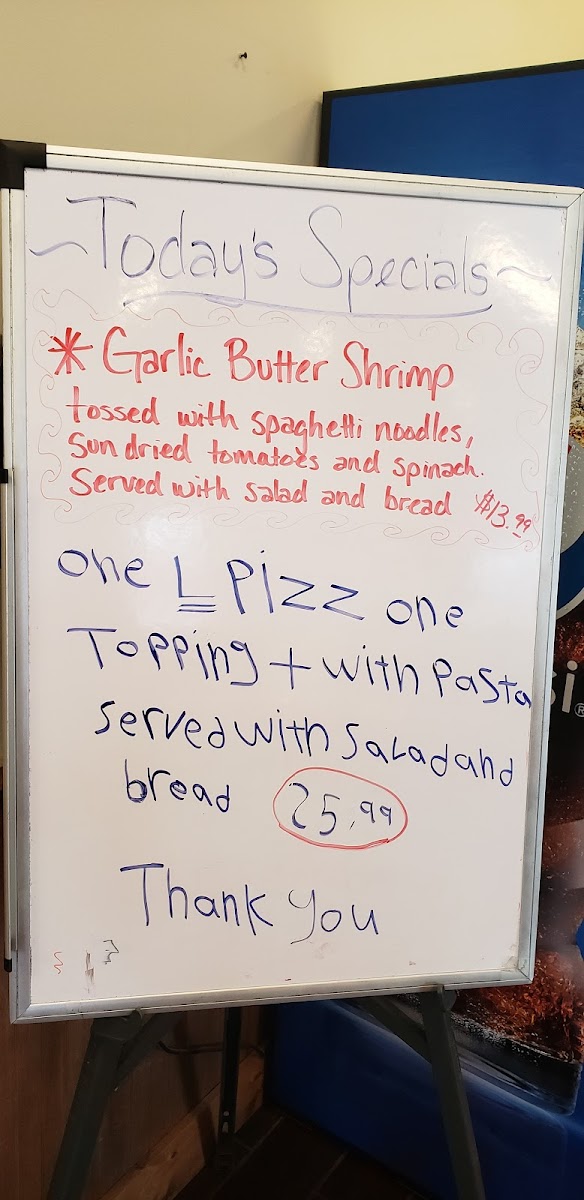 ~Today's Specials~
* Garlic Butter Shrimp
tossed with spaghetti noodles,
sundried tomatoes and spinach.
Served with salad and bread $13.99
one L Pizz one
Topping + with Pasta
served with salad and
bread 25.99
Thank you
si®